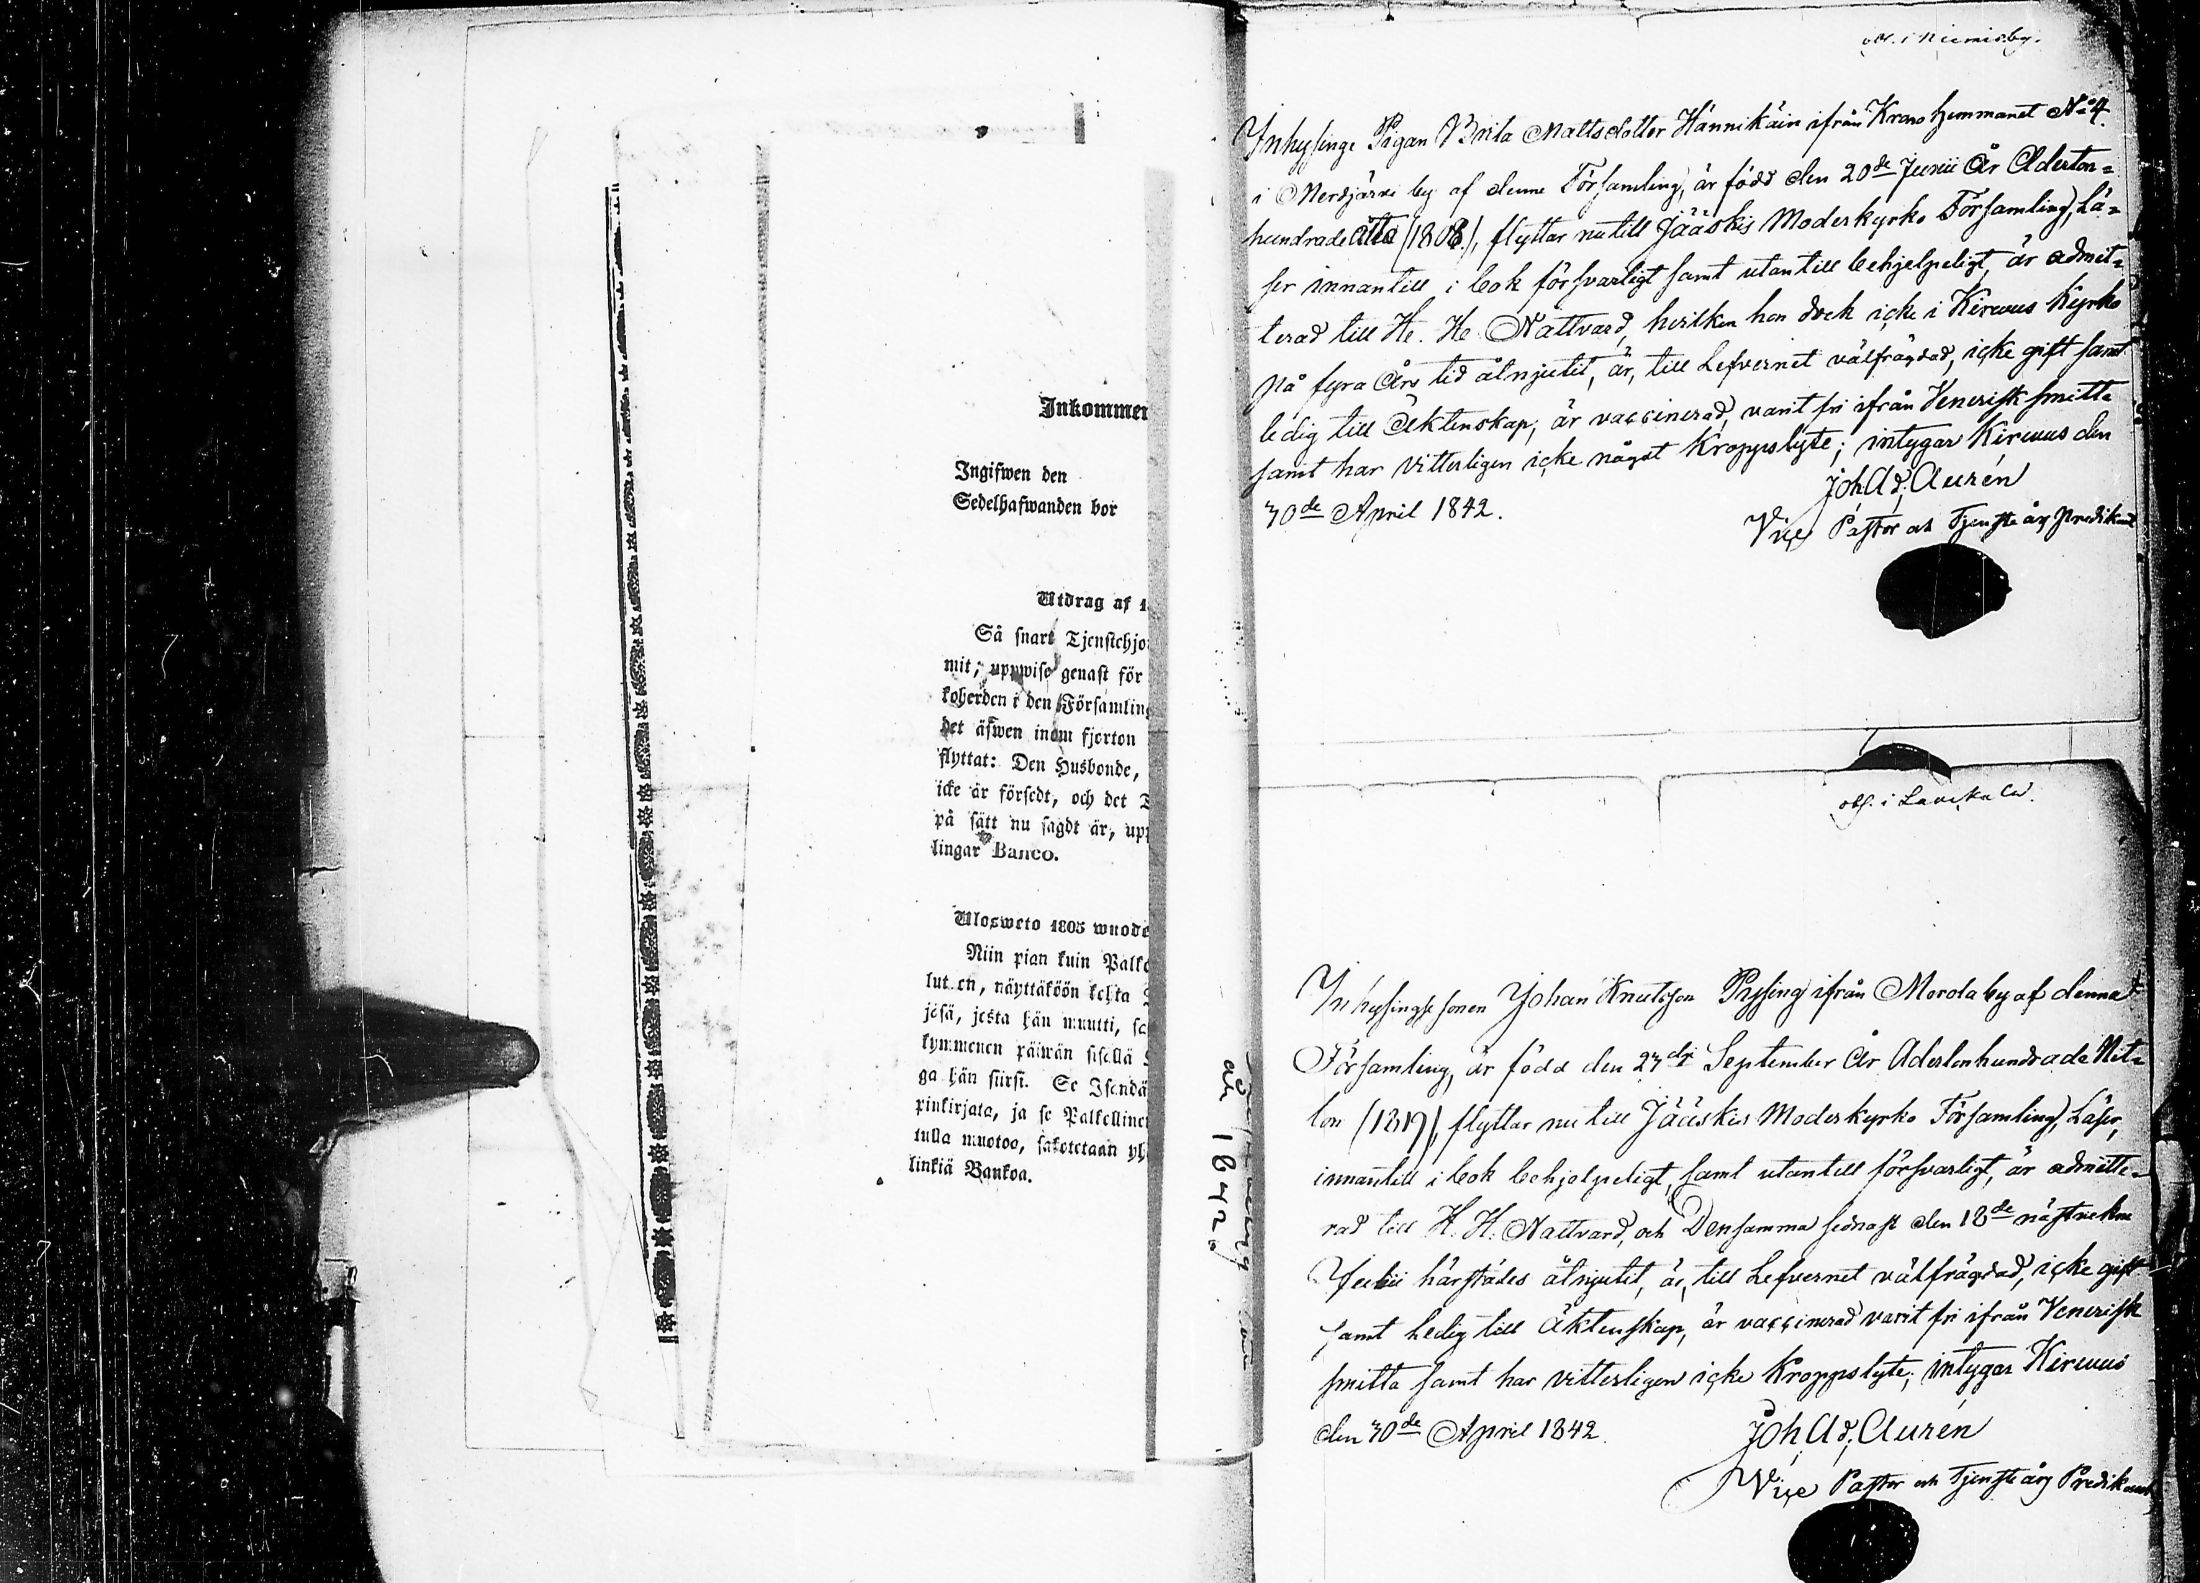 Inkommen
Ingifwen den
Sedelhafwanden bor
Utdrag af 1
Så snart Tjenstehjo
mit; uppwise genast för
koherden i den Församling
det äfwen inom fjorton
flyttat: Den Husbonde,
icke är försedt, och det T
på sätt nu sagdt är, upp
lingar Banco.
Ulosweto 1805 wuode
Niin pian kuin Palke
lut.en, näyttäköön kohta
jäsä, josta hän muutti, se
kymmenen päiwän sisällä
ga hän siirsi. Se Isendä
pinkirjata, ja se Palkollinen
tulla muotoo, sakotetaan yh
linkiä Bankoa.
år 1842
obs. i Niemis by.
Inhysinge Pigan Brita Mattsdotter Hännikäin ifrån Krono hemmanet No 4
i Merdjärvi by af denne Församling, är född den 20de Junii År Aderton=
hundrade åtta (1808), flyttar nu till Jääskis Moderkyrko Församling, Lä=
ser innantill i bok försvarligt samt utantill behjelpeligt, är admit=
terad till He. He Nattvard, hvilken hon dock icke i Kirvus Kyrko
på fyra Års tid åtnjutit, är, till Lefvernet välfrägdad, icke gift samt
ledig till Äktenskap, är vaccinerad, varit fri ifrån Venerisk smitta
samt har vitterligen icke något Kroppslyte; intygar Kirvus den
30de April 1842.
Joh. Ad. Aurén
Vice Pastor och Tjenste årg Predikant
obs. i Lauckala.
Inhysings sonen Johan Knutsson Pysing ifrån Merola by af denna
Församling, är född den 23dje September År Adertonhundrade Nit=
ton (1819), flyttar nu till Jääskis Moderkyrko Församling, Läser,
innantill i bok behjelpeligt, samt utantill försvarligt, är admitte=
rad till H. H. Nattvard, och Densamma sednast den 18de nästvekne
Julii härstädes åtnjutit, är, till Lefvernet välfrägdad, icke gift
samt ledig till Äktenskap, är vaccinerad varit fri ifrån Venerisk
smitta samt har vitterligen icke Kroppslyte; intygar Kirvus
den 30de April 1842.
Joh. Ad. Aurén
Vice Pastor och Tjenste årg Predikant